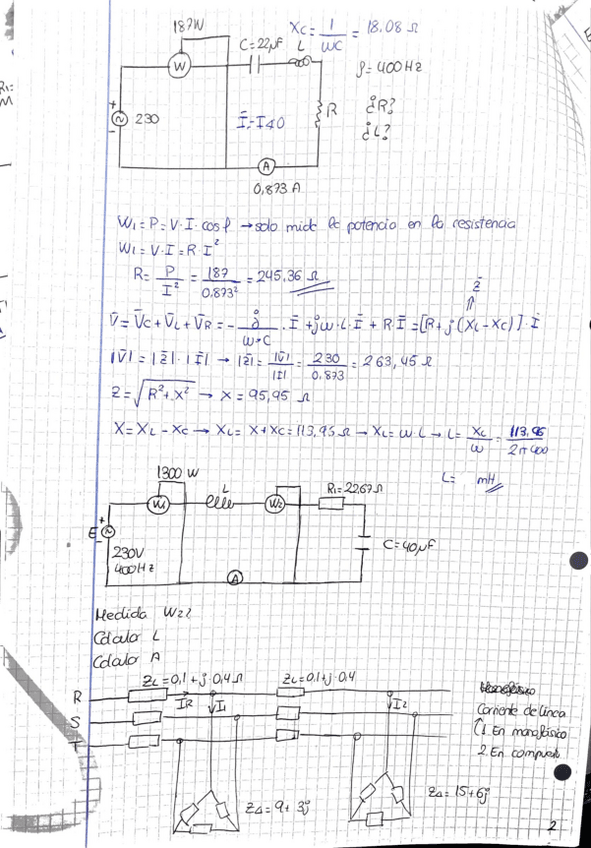 187W
Xc = 1/WC = 18.08 Ω
C = 22µF
L
W
f = 400Hz
230
Ī = I∠0
R
¿R?
¿L?
A
0,873 A
W₁ = P = V·I·cosφ → solo mide la potencia en la resistencia
W₁ = V·I = R·I²
R = P/I² = 187/0.873² = 245,36 Ω
Z̄
⇑
V̄ = V̄c + V̄L + V̄R = - j/(W·C) · Ī + jw·L·Ī + R·Ī = [R + j(XL - Xc)]·Ī
|V̄| = |Z̄|·|Ī| → |Z̄| = |V̄|/|Ī| = 230/0.873 = 263,45 Ω
Z = √(R² + X²) → X = 95,95 Ω
X = XL - Xc → XL = X + Xc = 113,95 Ω → XL = W·L → L = XL/W = 113,95/2π400
L = mH
1300 W
W₁
L
W₂
R₁ = 22,67Ω
E
230V
400Hz
A
C = 40µF
Medida W₂
Calculo L
Calculo A
ZL = 0,1 + j·0.4Ω
ZL = 0,1 + j·0.4
R
IR
I₁
I₂
Corriente de linea
S
1. En monofásico
T
2. En compuest
Z△ = 9 + 3j
Z△ = 15 + 6j
2